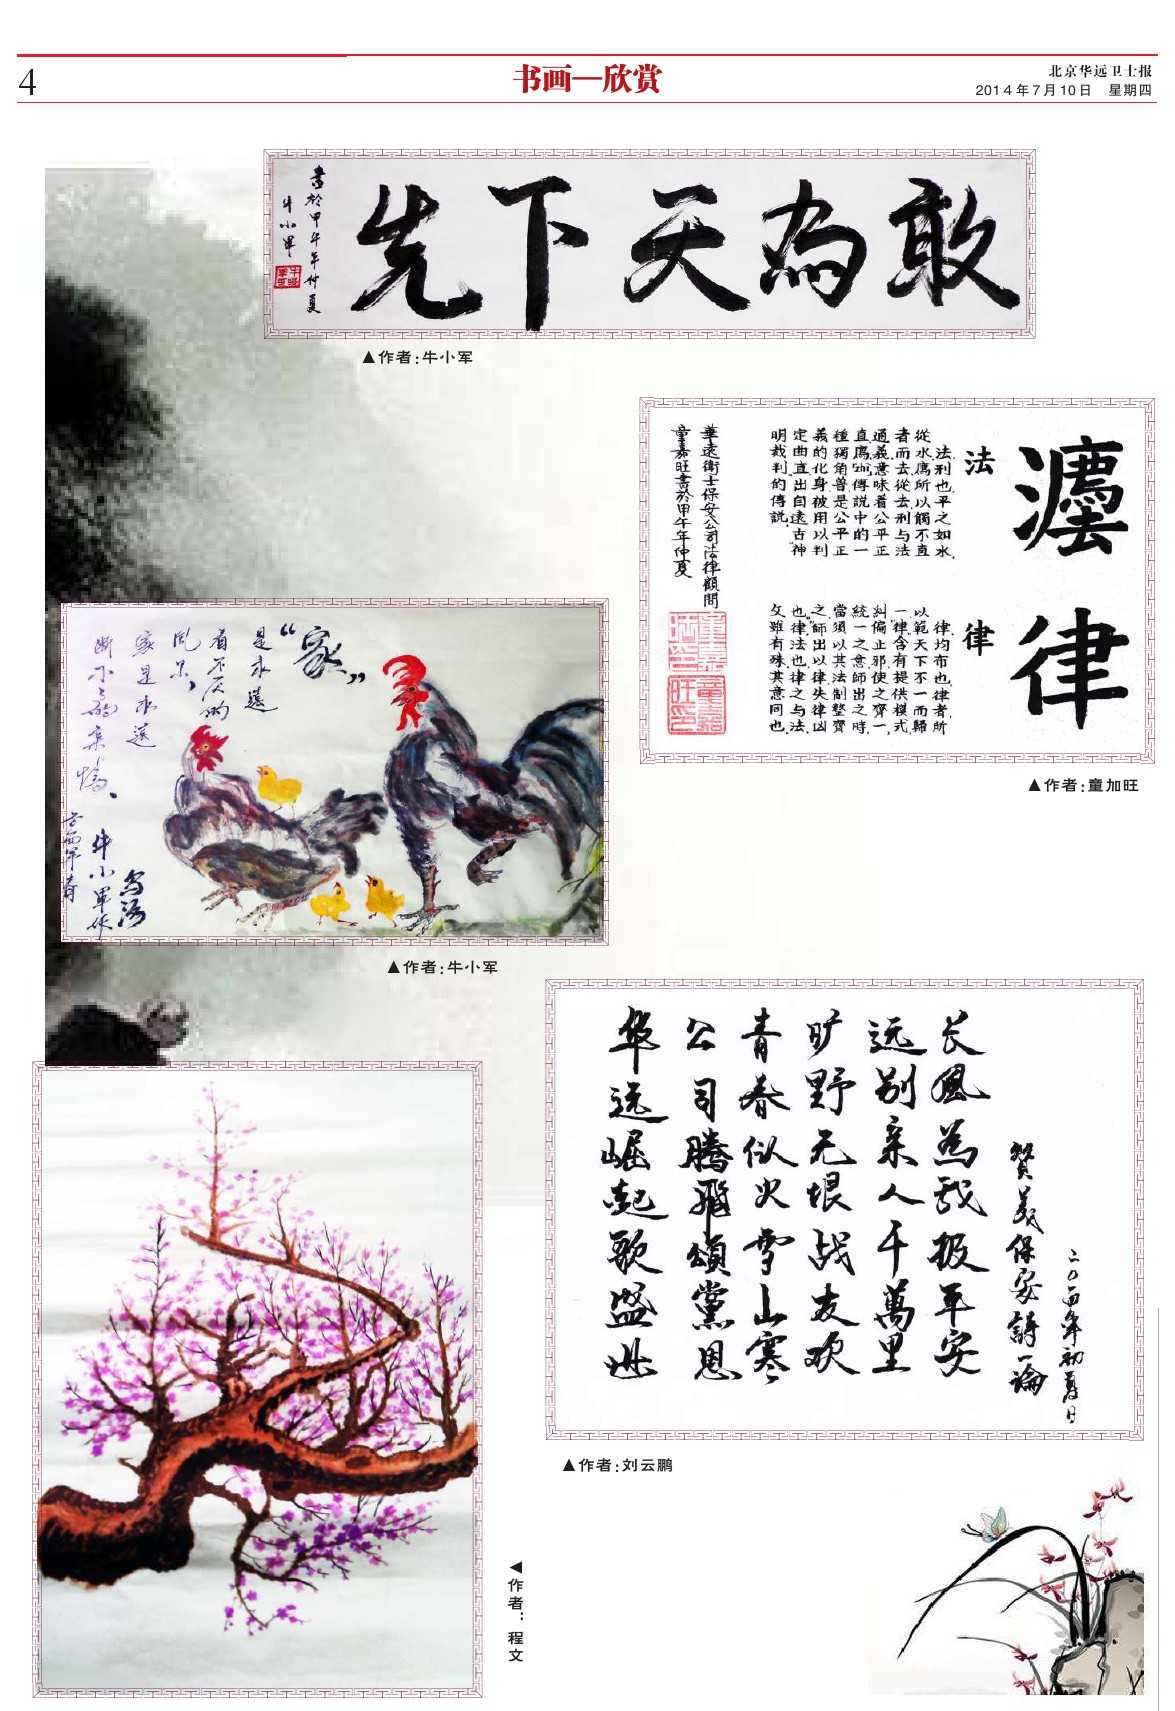 4
书画—欣赏
北京华远卫士报
2014年7月10日 星期四
敢為天下先
書於甲午年仲夏
牛小軍
▲作者:牛小军
灋律
法
法刑也平之如水
從水廌所以觸不直
者而去從去刑与法
通義意味着公平正
直廌zhì傳説中的一
種獨角兽是公平正
義的化身被用以判
定曲直出自遠古神
明裁判的傳説
律
律均布也律者所
以範天下不一而歸
一律含有提供模式
糾偏止邪使之齊一
統一之意師出之時
當須以其法制整齊
之師出以律失律凶
也律法也律之与法
文雖有殊其意同也
華遠衛士保安公司法律顧問
童嘉旺書於甲午年仲夏
▲作者:童加旺
“家”
是永遠
看不厌的
风景,
家是永远
断不了的
牛小軍
▲作者:牛小军
赞美保安詩一論
二〇一四年初夏日
长風為我报平安
远别亲人千萬里
旷野无垠战友欢
青春似火雪山寒
公司腾飛頌黨恩
华远崛起歌盛世
▲作者:刘云鹏
◀作者：程文